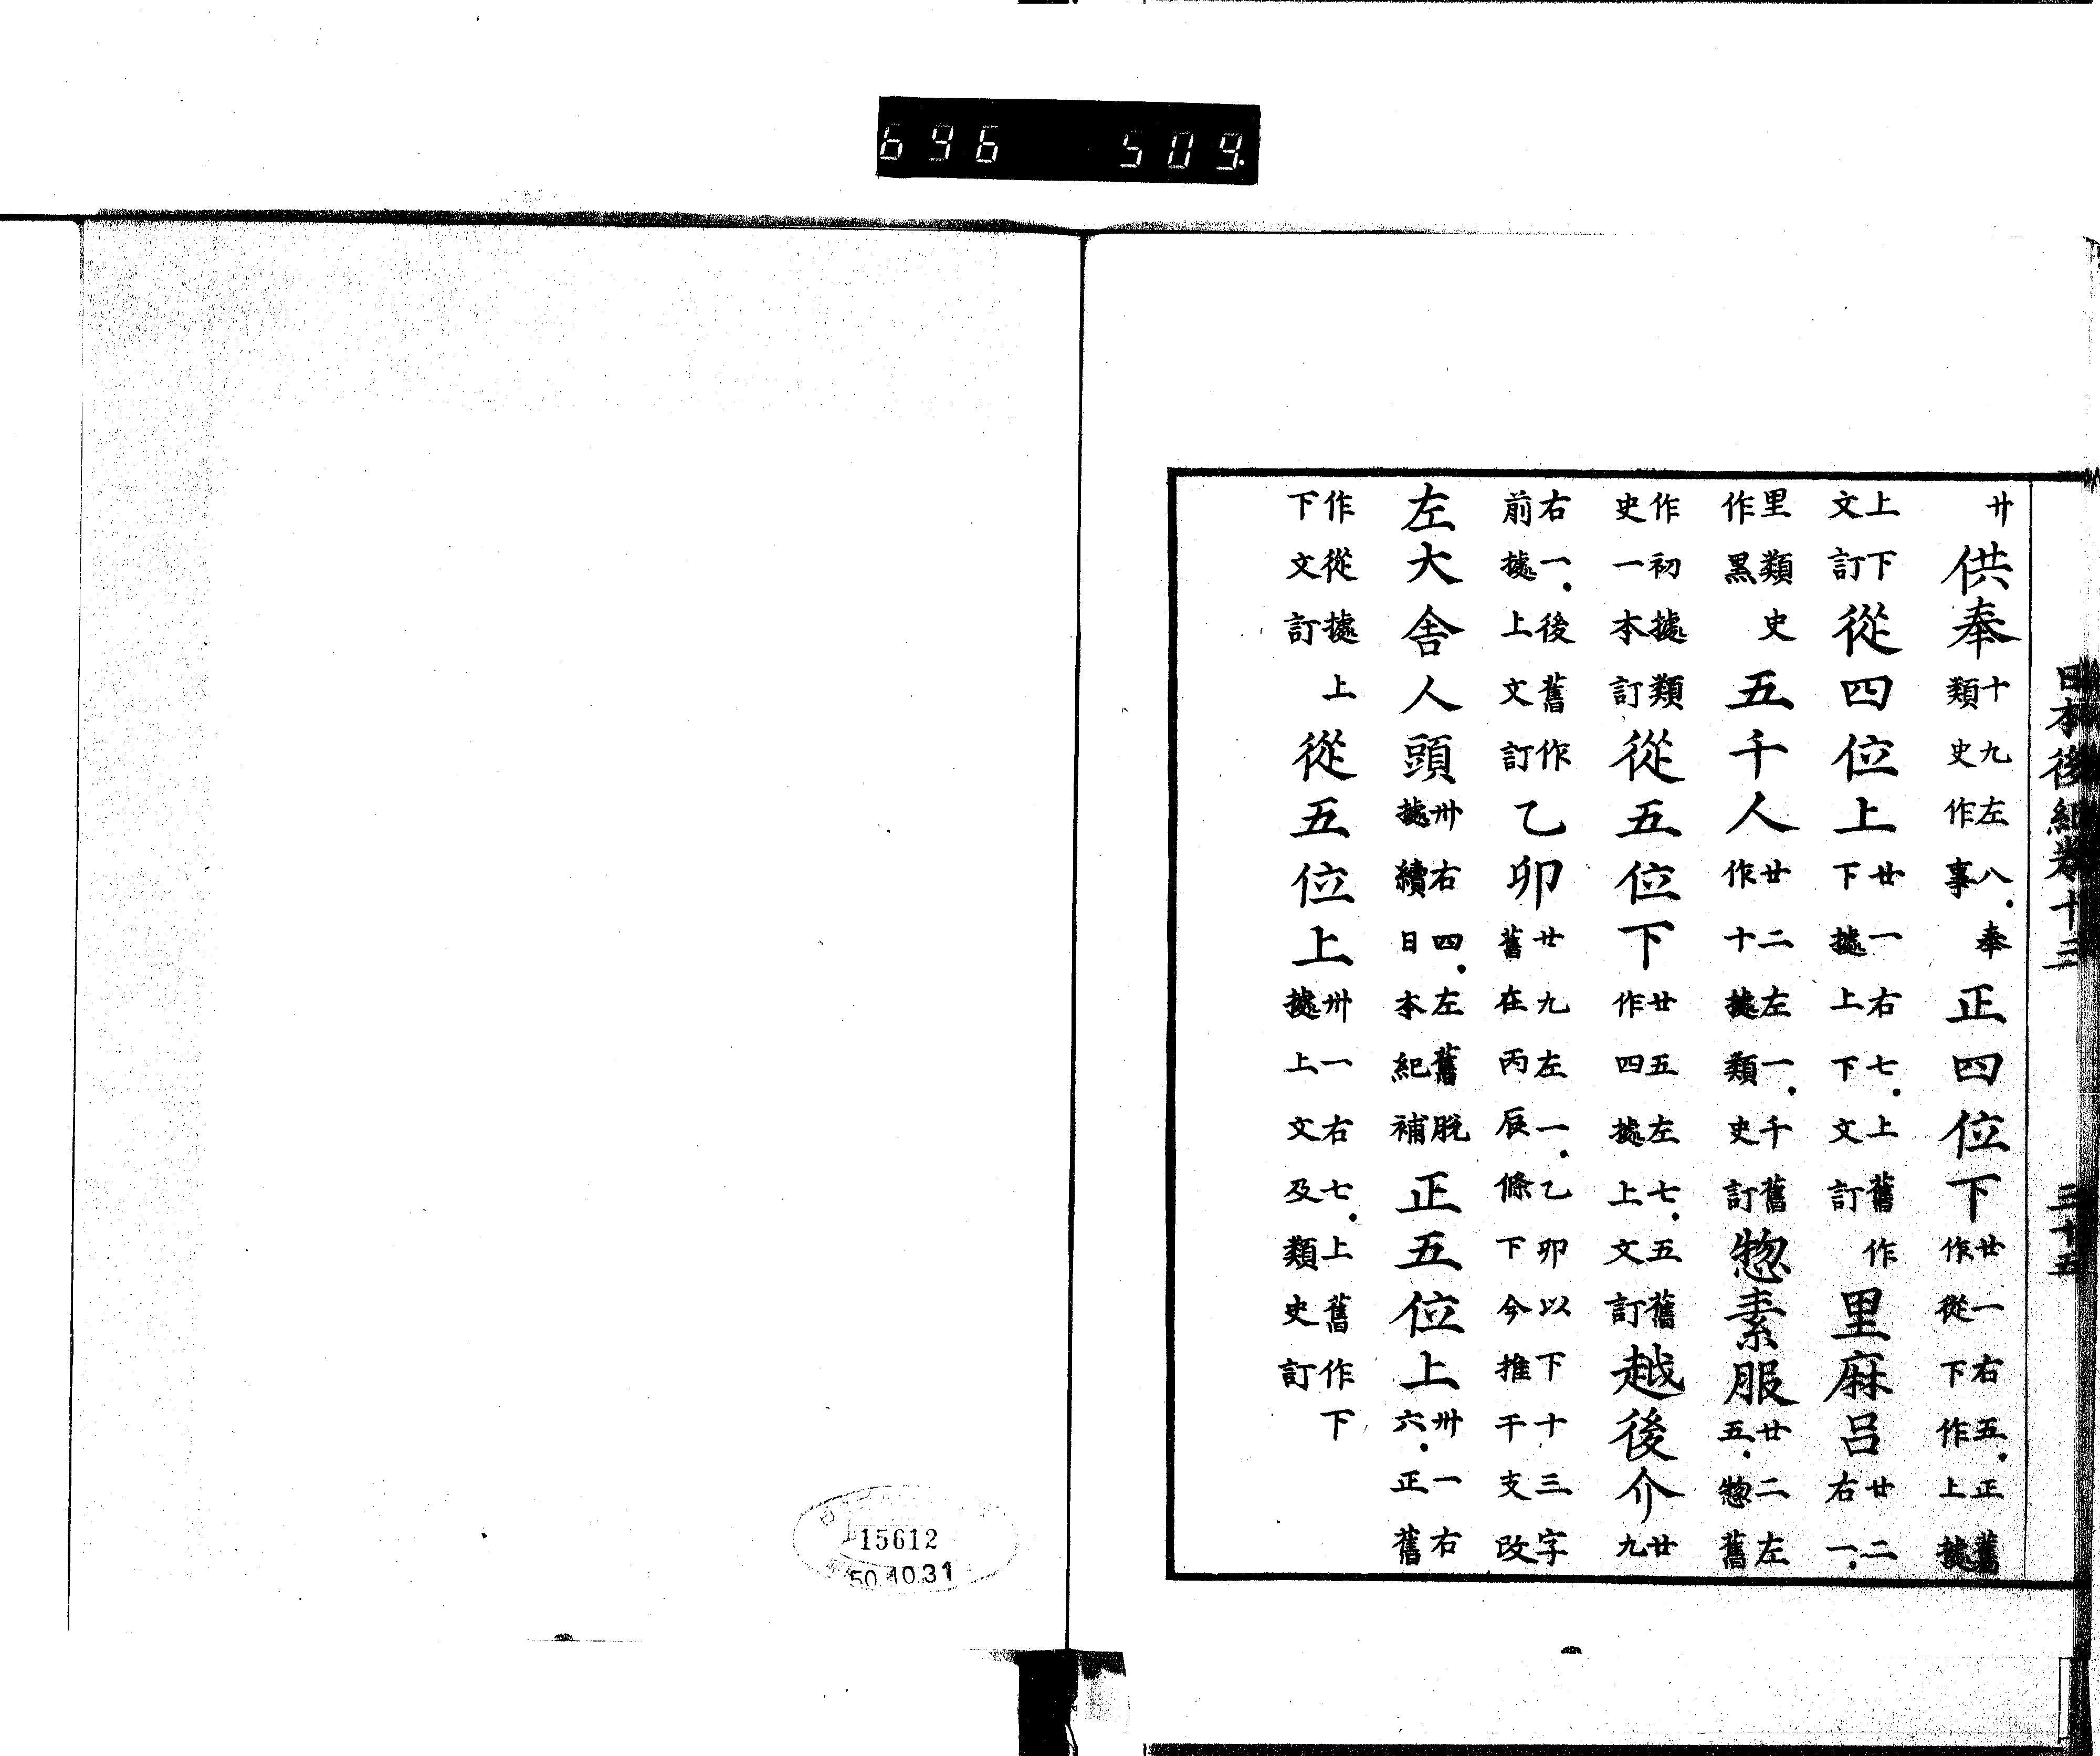 日本後紀卷十三 三十五
廿供奉十九左八.奉類史作事正四位下廿一右五.正舊作從下作上據
上下文訂從四位上廿一右七.上舊作下據上下文訂里麻呂廿二右一.
里類史作黑五千人廿二左一.千舊作十據類史訂惣素服廿二左五.惣舊
作初據類史一本訂從五位下廿五左七.五舊作四據上文訂越後介廿九
右一.後舊作前據上文訂乙卯廿九左一.乙卯以下十三字舊在丙辰條下今推干支改
左大舍人頭卅右四.左舊脫據續日本紀補正五位上卅一右六.正舊
作從據上下文訂從五位上卅一右七.上舊作下據上文及類史訂
696 509.
15612
50.10.31